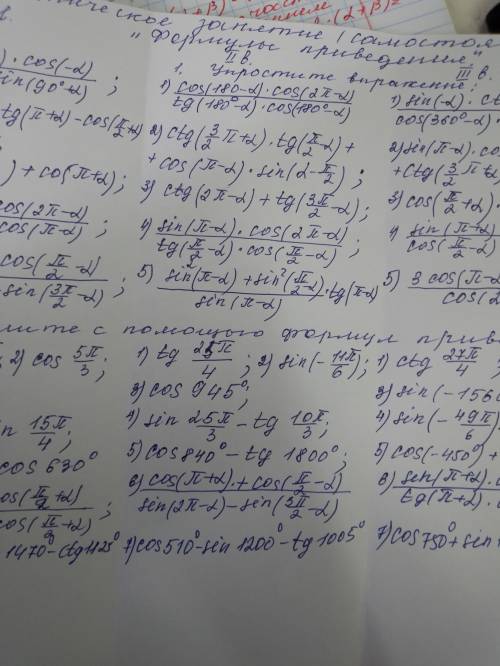 (α+β)=
занятие (самостоя
"Формулы приведения"
II в.
III в.
1. Упростите выражение:
) · cos(-α)
sin(90°-α) ;
tg(π+α) - cos(π/2+α)
) + cos(π+α);
cos(2π-α)
cos(π-α) ;
cos(π/2-α)
-sin(3π/2-α) ;
1) cos(180-α)·cos(2π-α)
tg(180°-α)·cos(180°-α)
2) ctg(3/2π+α)·tg(π/2-α)+
+cos(π-α)·sin(α-π/2) ;
3) ctg(2π-α)+tg(3π/2-α);
4) sin(π-α)·cos(2π-α)
tg(π/2-α)·cos(π/2-α) ;
5) sin²(π-α)+sin²(π/2-α)
sin(π-α) ·tg(π-α)
1) sin(-α)·ct
cos(360°-α)
2) sin(π-α)·co
+ctg(3/2π+α
3) cos(π/2+α)·
4) sin(π-α
cos(π/2-α)
5) 3cos(π-
cos(α
с помощью формул приве
2) cos 5π/3 ;
sin 15π/4 ;
cos 630°
cos(π/2+α)
cos(π+α) ;
1470°-ctg1125°
1) tg 25π/4 ; 2) sin(-11π/6);
3) cos 945°;
4) sin 25π/3 - tg 10π/3 ;
5) cos840°-tg 1800°;
6) cos(π+α)+cos(π/2-α)
sin(2π-α)-sin(3π/2-α)
7) cos510°-sin1200°-tg1005°
1) ctg 27π/4 ;
3) sin(-1560
4) sin(-49π/6)
5) cos(-450°)+
6) sin(π+α)·
tg(π+α)·
7) cos750°+sin